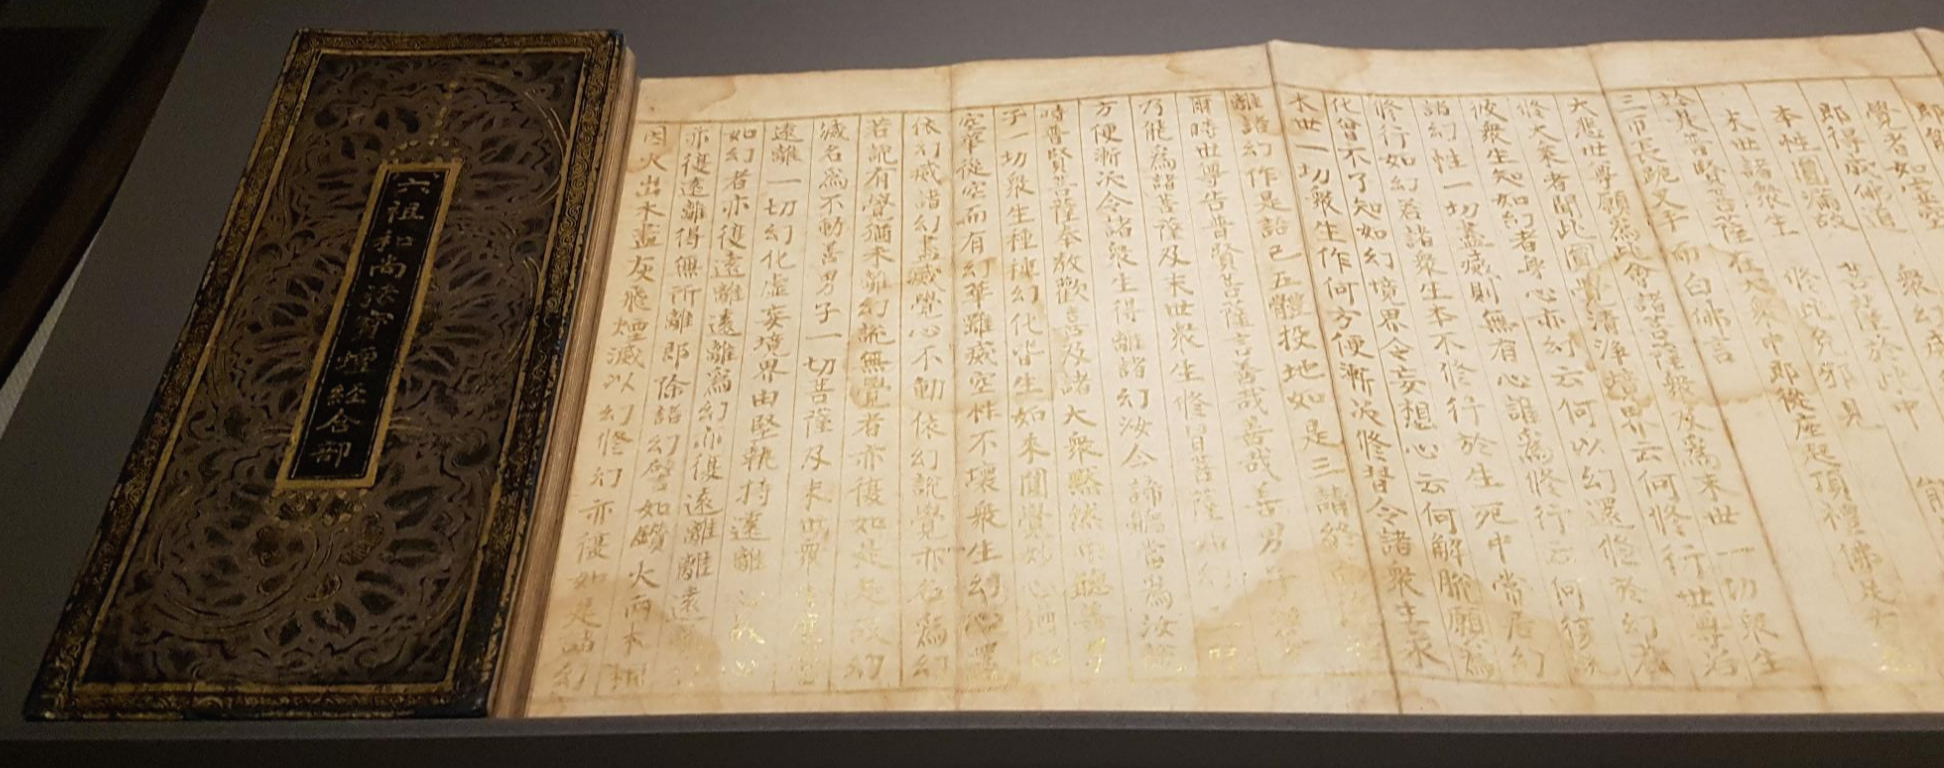 六祖和尚法寶壇經合部
覺者如虛空 衆幻滅
即得成佛道 菩薩於此中
本性圓滿故 修此免邪見
末世諸衆生
於是普賢菩薩在大衆中即從座起頂禮佛足
三帀長跪叉手而白佛言
大悲世尊願為此會諸菩薩衆及為末世一切衆生
修大乘者聞此圓覺清淨境界云何修行世尊若
彼衆生知如幻者身心亦幻云何以幻還修於幻若
諸幻性一切盡滅則無有心誰為修行云何復說
修行如幻若諸衆生本不修行於生死中常居幻
化曾不了知如幻境界令妄想心云何解脫願為
末世一切衆生作何方便漸次修習令諸衆生永
離諸幻作是語已五體投地如是三請終
爾時世尊告普賢菩薩言善哉善哉善男子汝等
乃能為諸菩薩及末世衆生修習菩薩如幻三昧
方便漸次令諸衆生得離諸幻汝今諦聽當為汝說
時普賢菩薩奉教歡喜及諸大衆默然而聽善男
子一切衆生種種幻化皆生如來圓覺妙心猶如
空華從空而有幻華雖滅空性不壞衆生幻心還
依幻滅諸幻盡滅覺心不動依幻說覺亦名為幻
若說有覺猶未離幻說無覺者亦復如是是故幻
滅名為不動善男子一切菩薩及末世衆
遠離一切幻化虛妄境界由堅執持遠離心故心
如幻者亦復遠離遠離為幻亦復遠離離遠
亦復遠離得無所離即除諸幻譬如鑽火兩木相
因火出木盡灰飛煙滅以幻修幻亦復如是諸幻